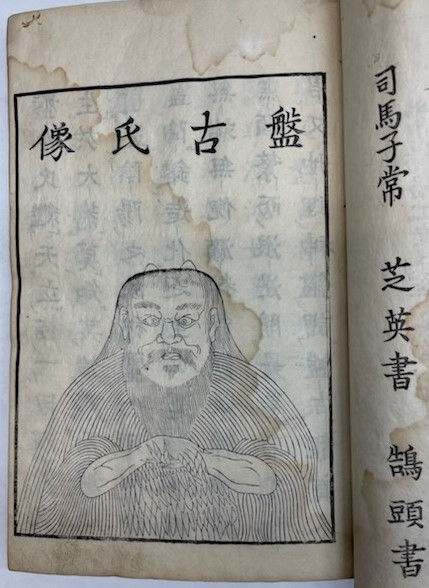 司馬子常 芝英書 鵠頭書
盤古氏像